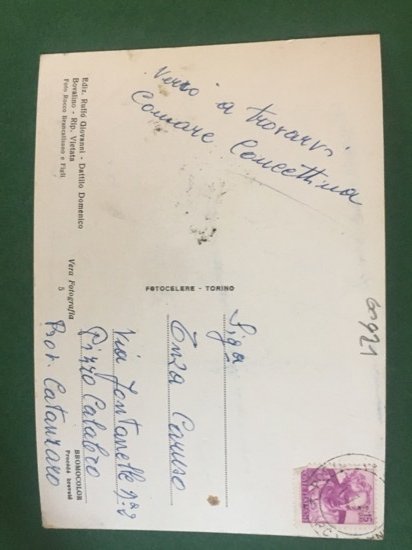 Verrò a trovarvi
Comare Concettina
Ediz. Ruffo Giovanni - Dattilo Domenico
Bovalino - Rip. Vietata
Foto Rocco Brancatisano e Figli
Vera Fotografia
5
BROMOCOLOR
FOTOCELERE - TORINO
Sig.a
Enza Caruso
Via Fontanelle n° 2
Pizzo Calabro
Prov. Catanzaro
60921